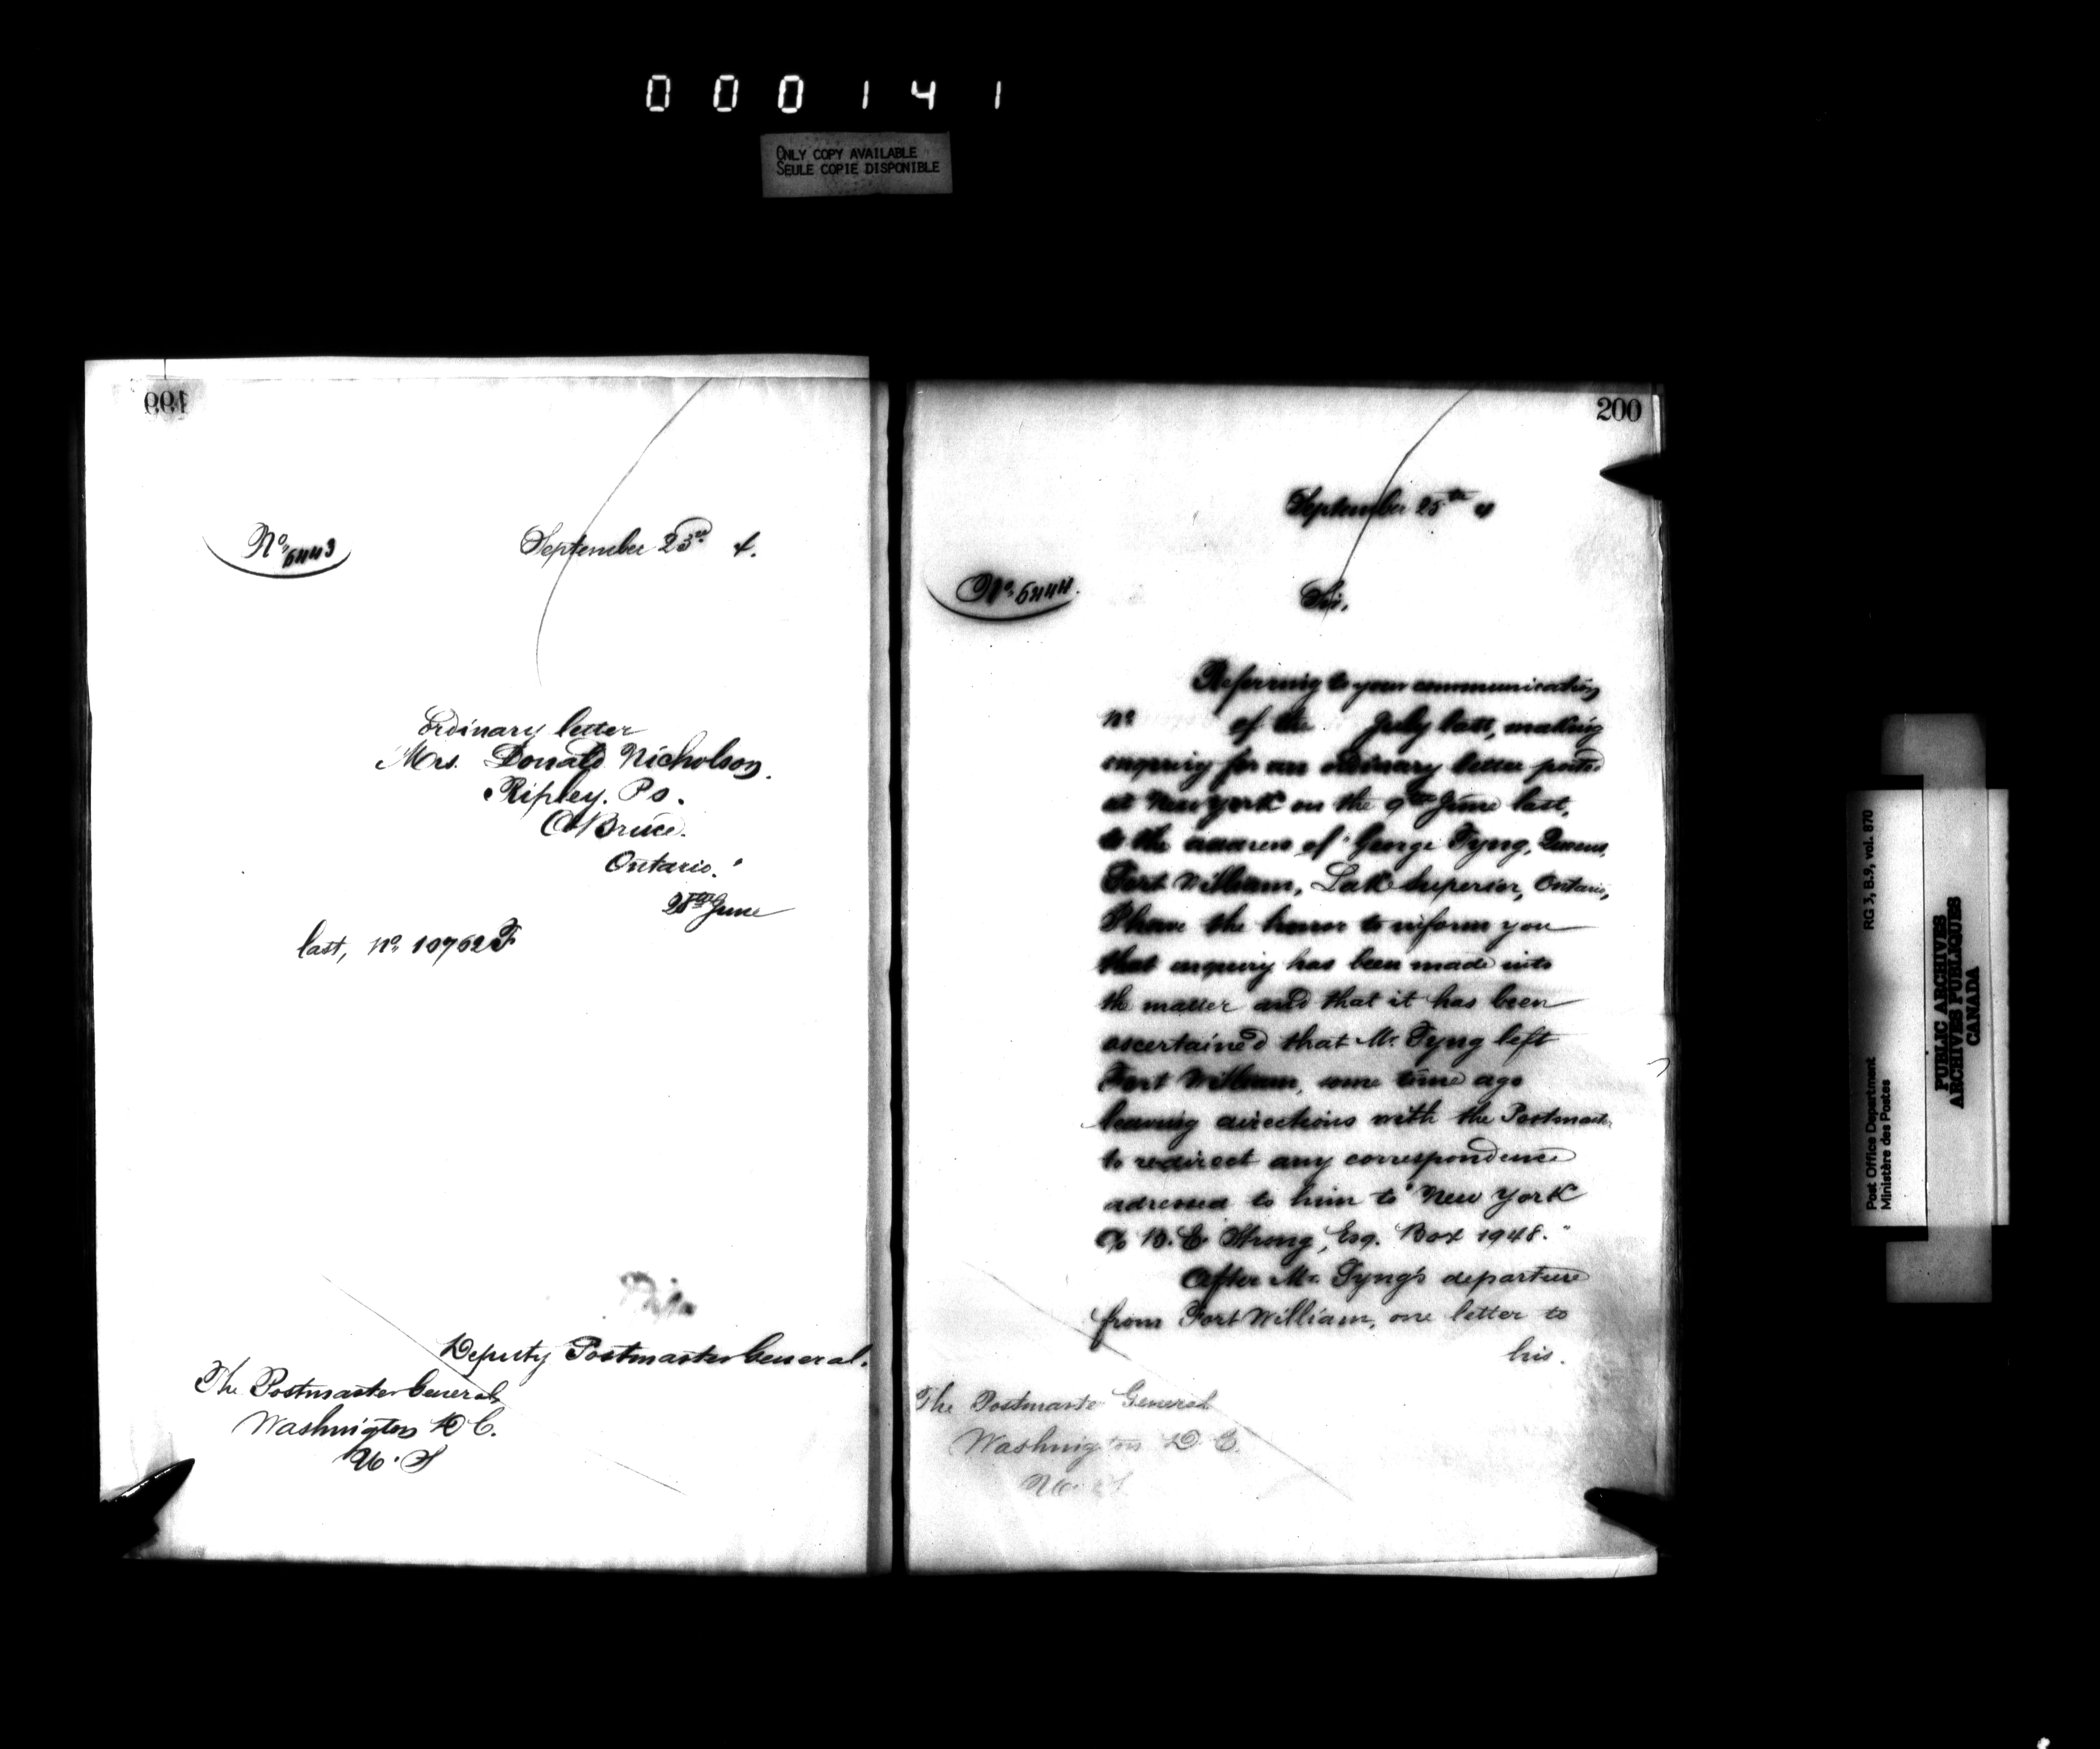 000141
ONLY COPY AVAILABLE
SEULE COPIE DISPONIBLE
199
No. 6443
September 23rd 4.
Ordinary letter
Mrs. Donald Nicholson.
Ripley. Po.
Co Bruce.
Ontario."
28th June
last, No. 10762 F
Deputy Postmaster General.
The Postmaster General,
Washington D C.
U. S
200
September 25th 4
No. 6444.
Sir,
Referring to your communication
No of the July last, making
enquiry for an ordinary letter posted
at New York on the 9th June last,
to the address of "George Tyng,
Fort William, Lake Superior, Ontario,
I have the honor to inform you
that enquiry has been made into
the matter and that it has been
ascertained that Mr. Tyng left
Fort William, some time ago
leaving directions with the Postmaster
to redirect any correspondence
adressed to him to "New York
c/o B. E Strong, Esq. Box 1948."
After Mr. Tyng's departure
from Fort William, one letter to
his.
The Postmaster General
Washington D. C.
U. S
Post Office Department
Ministère des Postes
RG 3, B.9, vol. 870
PUBLIC ARCHIVES
ARCHIVES PUBLIQUES
CANADA